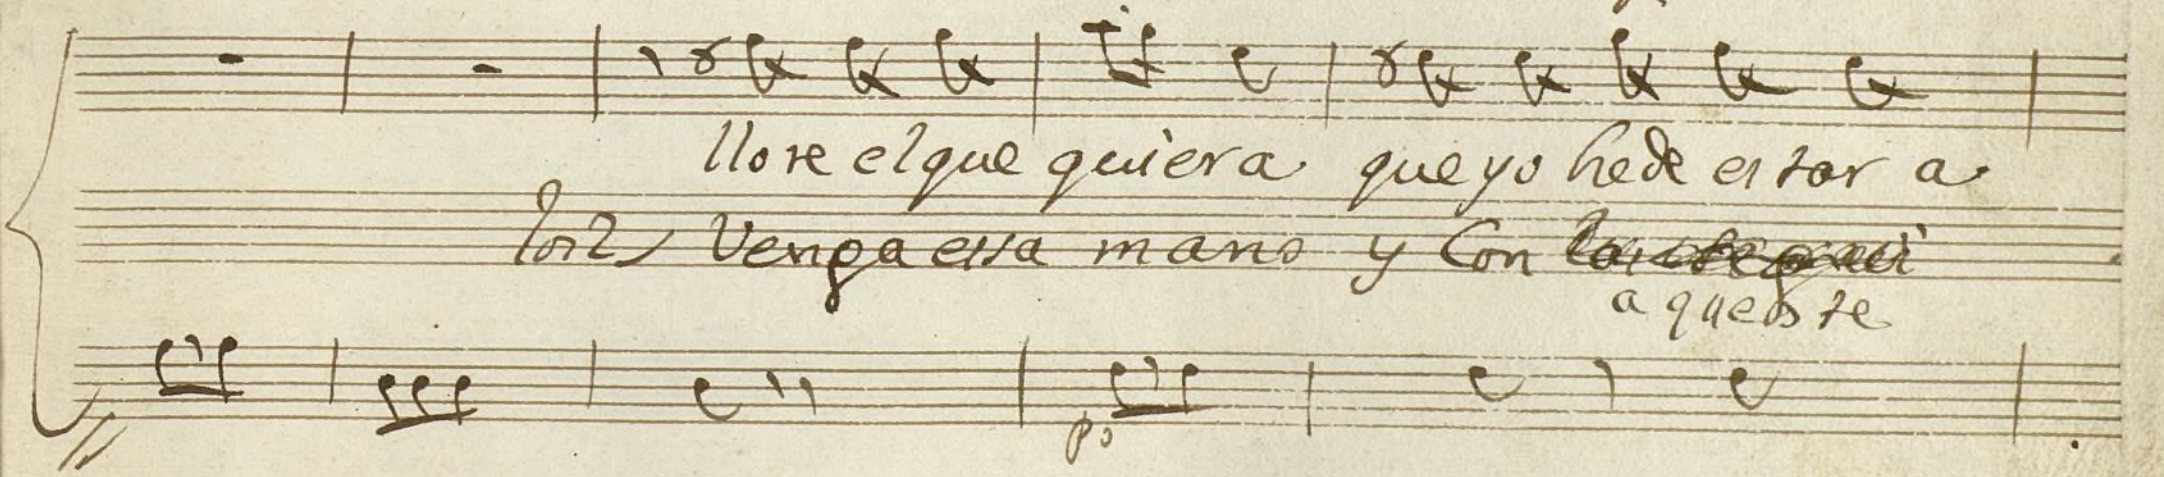 llore el que quiera que yo hede estar a
los 2 Venga essa mano y Con
aqueste
po